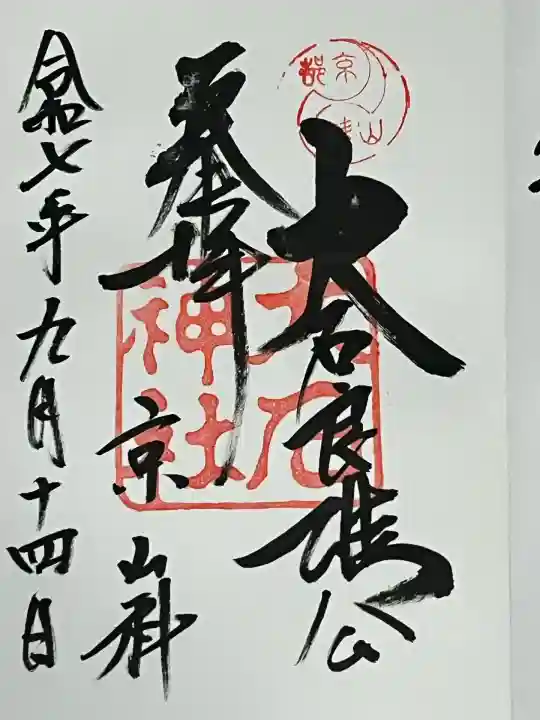 大石良雄公
奉拝
京
山科
令和七年九月十四日
大石
神社